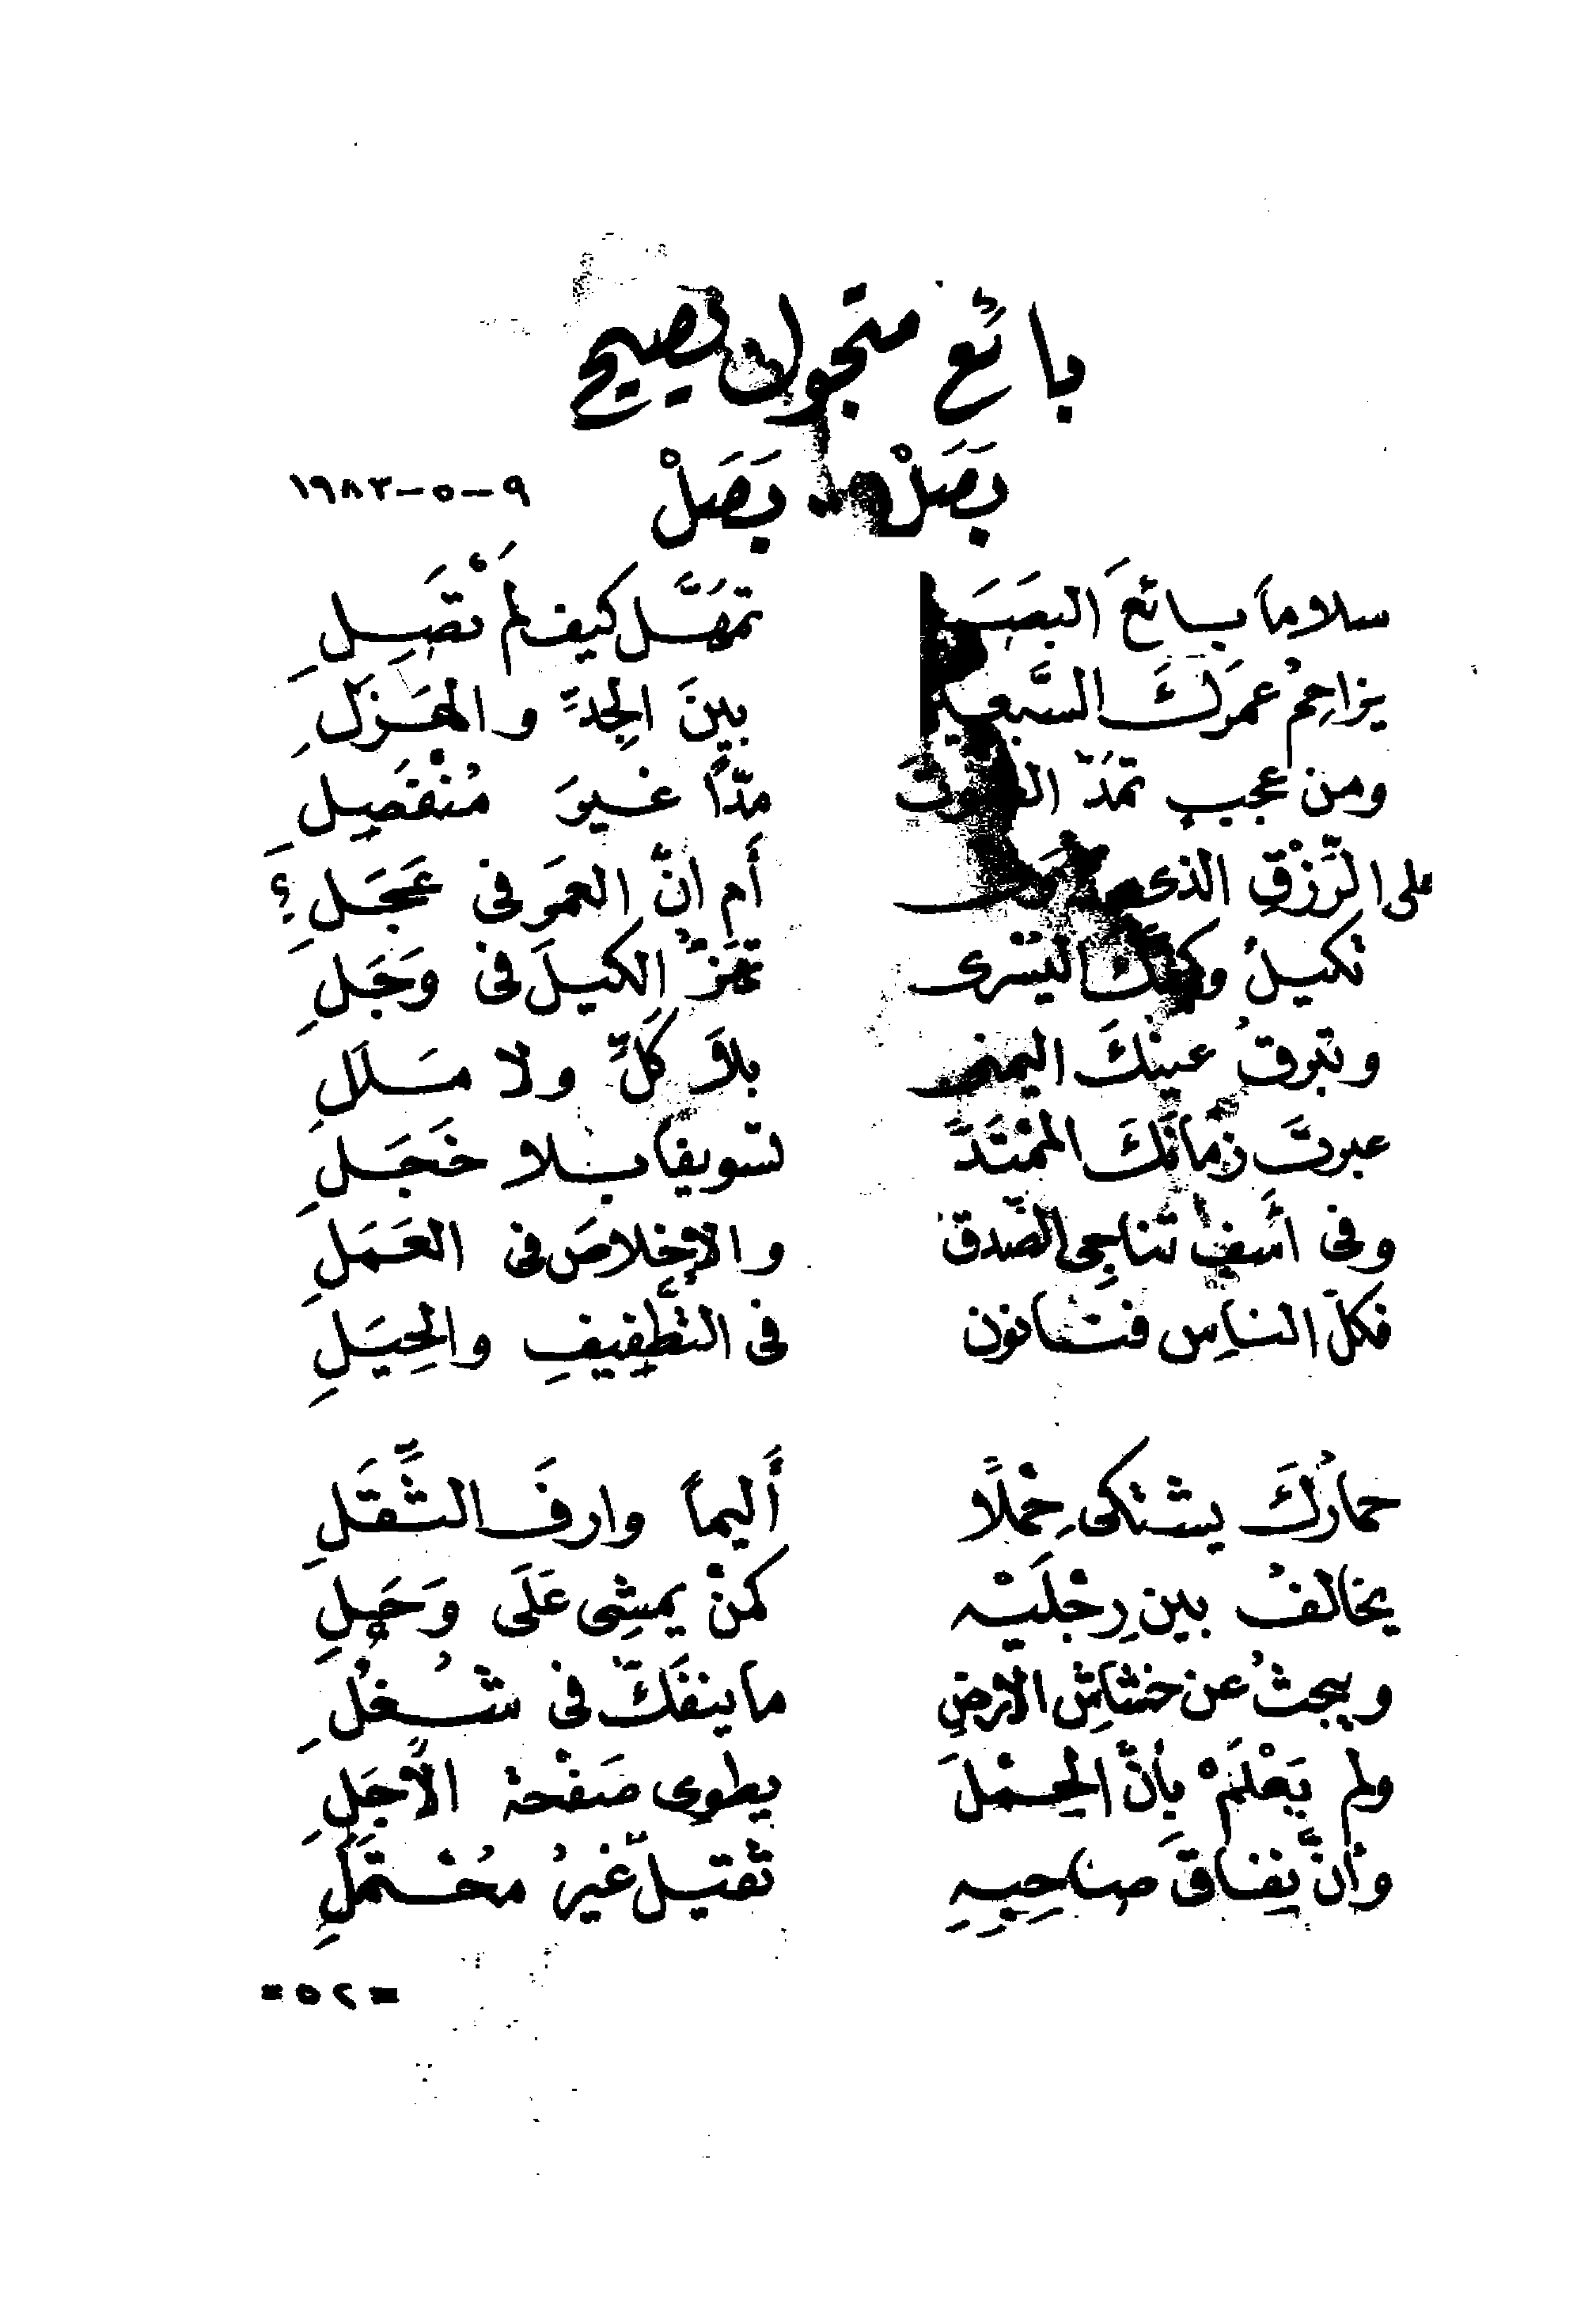 بائع متجول يصيح
بَصَلْ .. بَصَلْ ٩-٥-١٩٨٣
سلاماً بائعَ البصَـ تمهَّل كيف لم تَصِلِ
يزاحِمُ عمرَكَ السَّبعيـ بينَ الجِدِّ والهَزَلِ
ومن عجبٍ تمدّ الصوتَ مدّاً غيرَ مُنْفَصِلِ
على الرِّزْقِ الذى أم انّ العمرَ فى عَجَلِ ؟
تكيلُ وكفّكَ اليُسْرى تهَزُّ الكيلَ فى وَجَلِ
وتبرقُ عينكَ اليمنى بلا كَلٍّ ولا مَلَلِ
عبرتَ زمانَكَ الممْتَدَّ تسويفا بلا خَجَلِ
وفى أسفٍ تناجِى الصّدقَ والإخلاصَ فى العَمَلِ
فكلّ الناسِ فتانون فى التطْفِيفِ والحِيَلِ
حمارُكَ يشتكى حِمْلاً أليماً وارفَ الثِّقَلِ
يخالفُ بين رِجْلَيْه كمنْ يمشِى عَلَى وَحَلِ
ويبحثُ عن خشاشِ الأرضِ ما ينفَكّ فى شُغُلِ
ولم يَعْلَمْ بأنَّ الحِمْلَ يطوِى صَفْحة الأَجَلِ
وأنَّ نِفاقَ صاحِبِهِ ثقيلٌ غيرُ مُحْتَمَلِ
=٥٢=